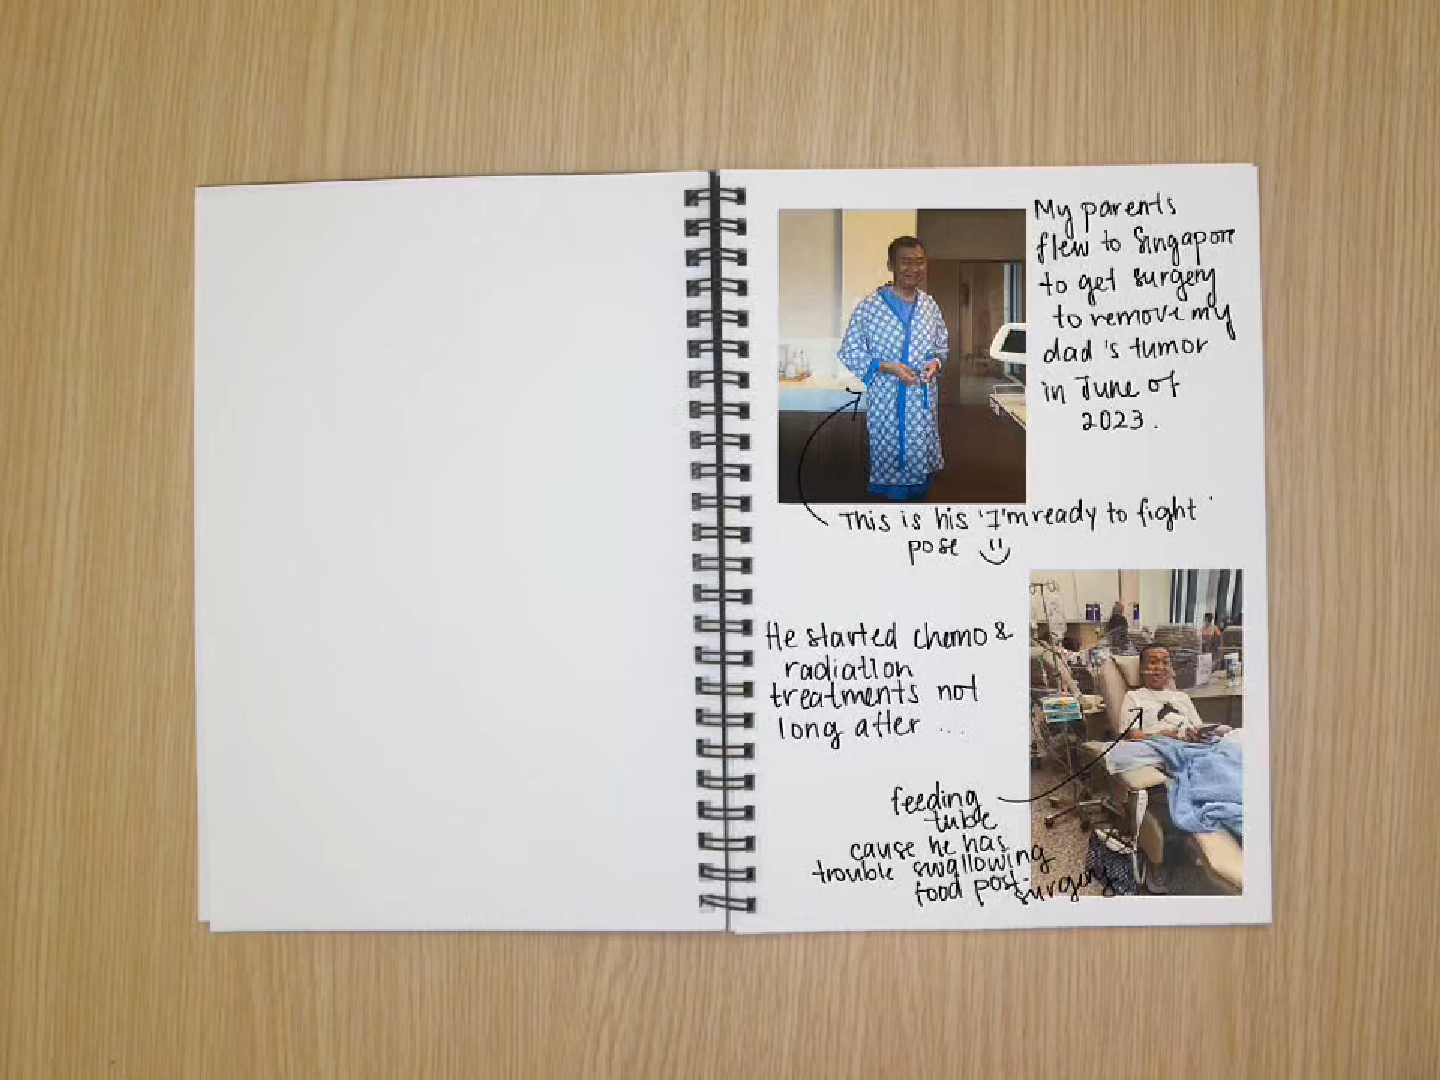 My parents
flew to Singapore
to get surgery
to remove my
dad's tumor
in June of
2023.
This is his 'I'm ready to fight'
pose
He started chemo &
radiation
treatments not
long after ...
feeding
tube
cause he has
trouble swallowing
food post-
surgery